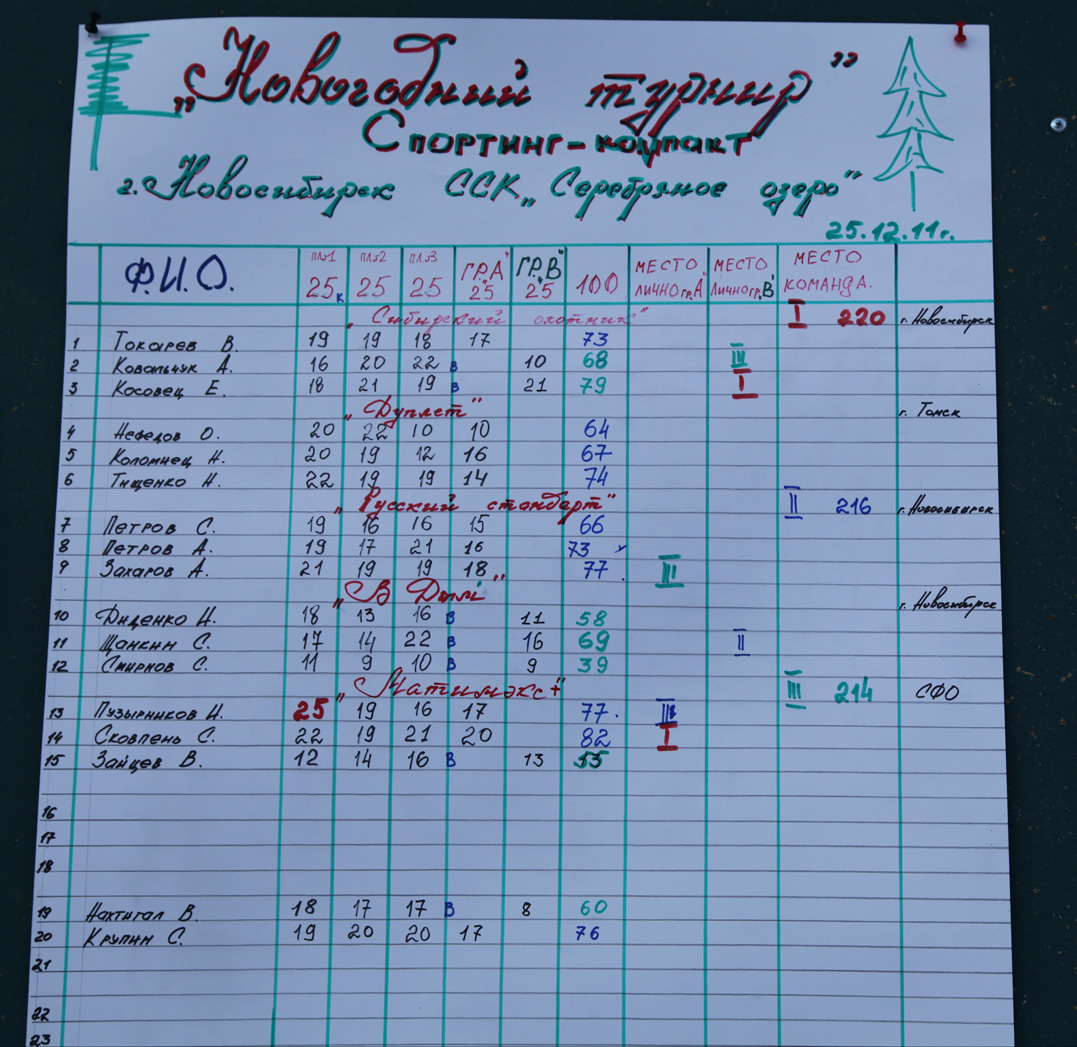 „Новогодний турнир”
Спортинг-компакт
г. Новосибирск ССК „Серебряное озеро”
25.12.11г.
Ф.И.О. ПЛ№1 25к ПЛ№2 25 ПЛ№3 25 ГР.„А" 25 ГР.„В" 25 100 МЕСТО ЛИЧНО гр.„А" МЕСТО ЛИЧНО гр.„В" МЕСТО КОМАНДА.
„Сибирский охотник" I 220 г. Новосибирск
1 Токарев В. 19 19 18 17 73
2 Ковальчук А. 16 20 22 В 10 68 III
3 Косовец Е. 18 21 19 В 21 79 I
„Дуплет" г. Томск
4 Нефедов О. 20 22 10 10 64
5 Коломнец Н. 20 19 12 16 67
6 Тищенко Н. 22 19 19 14 74
„Русский стандарт" II 216 г. Новосибирск
7 Петров С. 19 16 16 15 66
8 Петров А. 19 17 21 16 73
9 Захаров А. 21 19 19 18 77. III
„В Дым" г. Новосибирск
10 Диденко И. 18 13 16 В 11 58
11 Щанкин С. 17 14 22 В 16 69 II
12 Смирнов С. 11 9 10 В 9 39
„Матимэкс+" III 214 СФО
13 Пузырников И. 25 19 16 17 77.
14 Сковпень С. 22 19 21 20 82 I
15 Зайцев В. 12 14 16 В 13 55
16
17
18
19 Нахтигал В. 18 17 17 В 8 60
20 Крупин С. 19 20 20 17 76
21
22
23